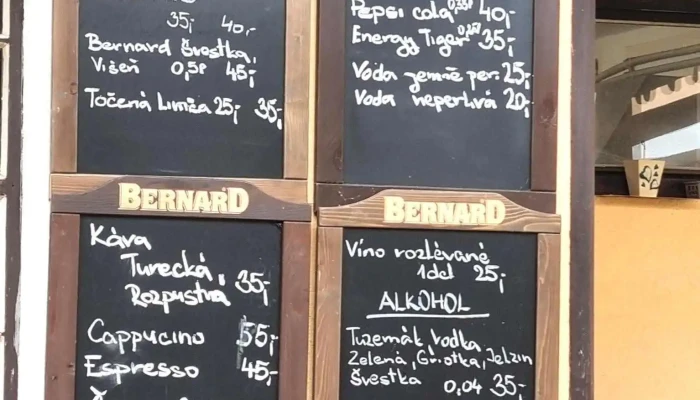 35,- 40,-
Bernard Švestka,
Višeň 0,5l 45,-
Točená Limča 25,- 35,-
Pepsi cola 0,33l 40,-
Energy Tiger 35,-
Voda jemně per. 25,-
Voda neperlivá 20,-
BERNARD
Káva
Turecká,
Rozpustná 35,-
Cappucino 55,-
Espresso 45,-
BERNARD
Víno rozlévané
1dcl 25,-
ALKOHOL
Tuzemák, vodka
Zelená, Griotka, Jelzin
Švestka 0,04 35,-